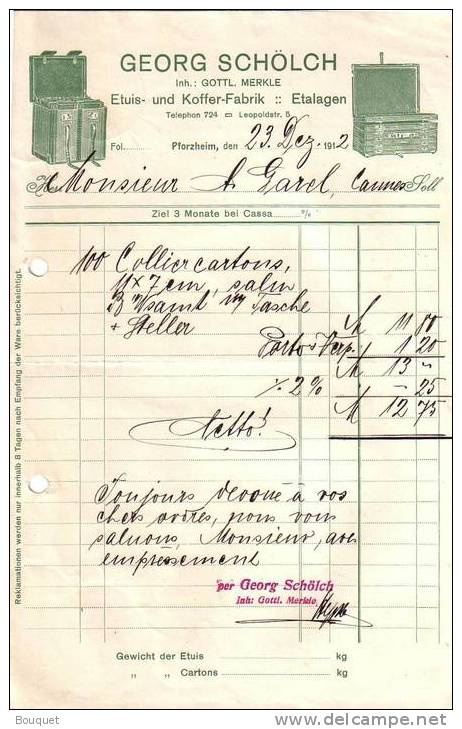 GEORG SCHÖLCH
Inh.: GOTTL. MERKLE
Etuis- und Koffer-Fabrik :: Etalagen
Telephon 724 Leopoldstr. 5
Fol. Pforzheim, den 23. Dez. 1912
Monsieur A. Garel, Cannes Soll
Ziel 3 Monate bei Cassa %
100 Colliercartons,
11 x 7 cm, salm
Tasche
+ Steller
M 11 80
Porto & Verp. 1 20
M 13 "
./. 2 % " 25
M 12 75
Netto!
Toujours dévoué à vos
chers ordres, nous vous
saluons, Monsieur, avec
empressement
per Georg Schölch
Inh: Gottl. Merkle
Gewicht der Etuis kg
" " Cartons kg
Reklamationen werden nur innerhalb 8 Tagen nach Empfang der Ware berücksichtigt.
Bouquet
www.delcampe.net